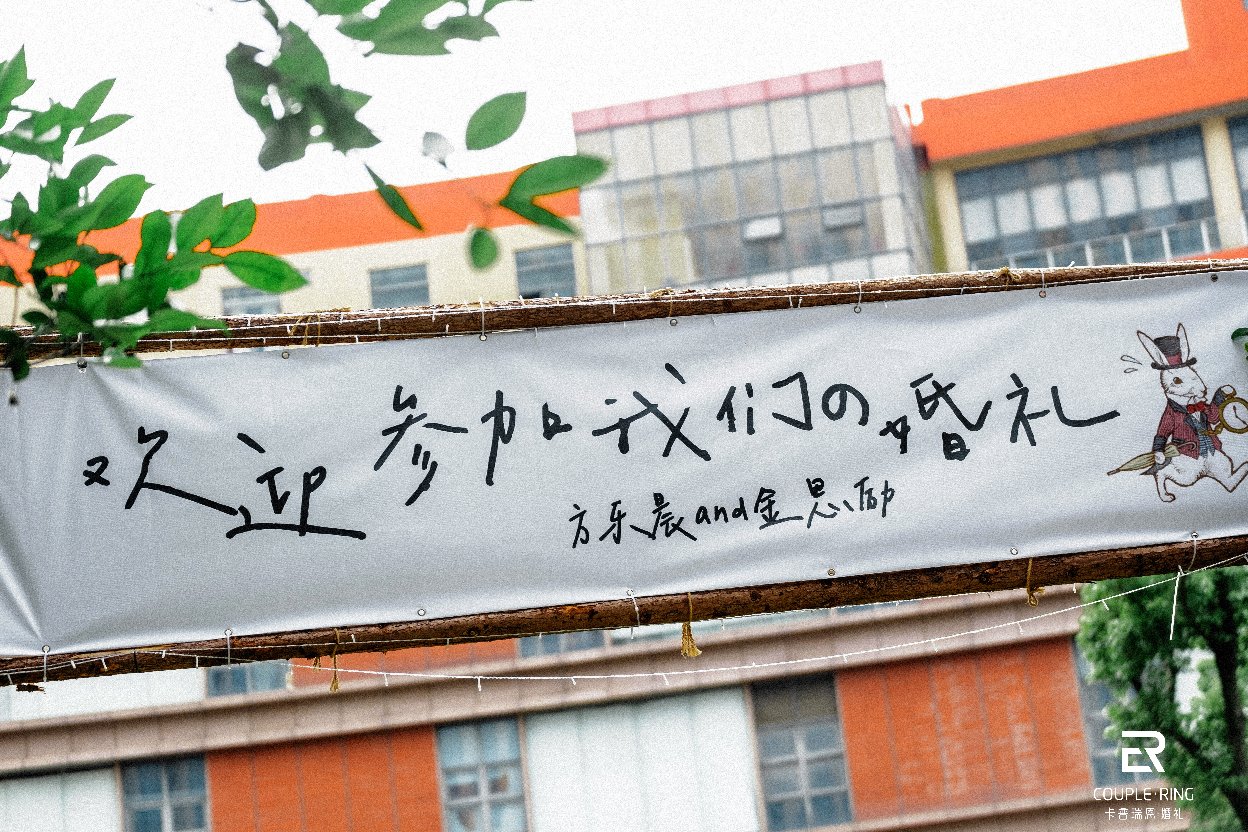 欢迎参加我们の婚礼
方乐晨and金思励
COUPLE·RING
卡普瑞恩 婚礼